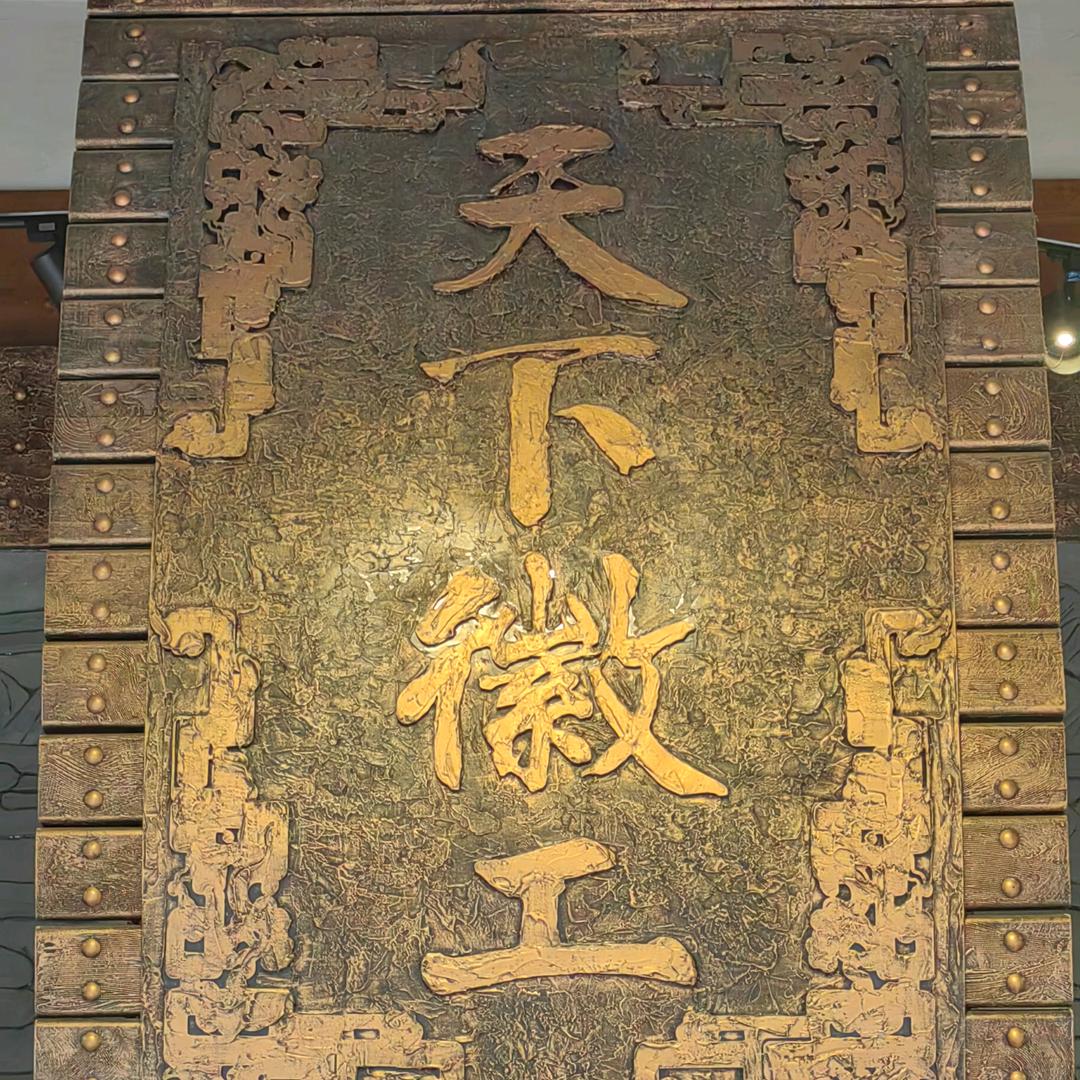 天下徽工